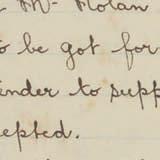 Mr Nolan
to be got for
ender to supp
cepted.